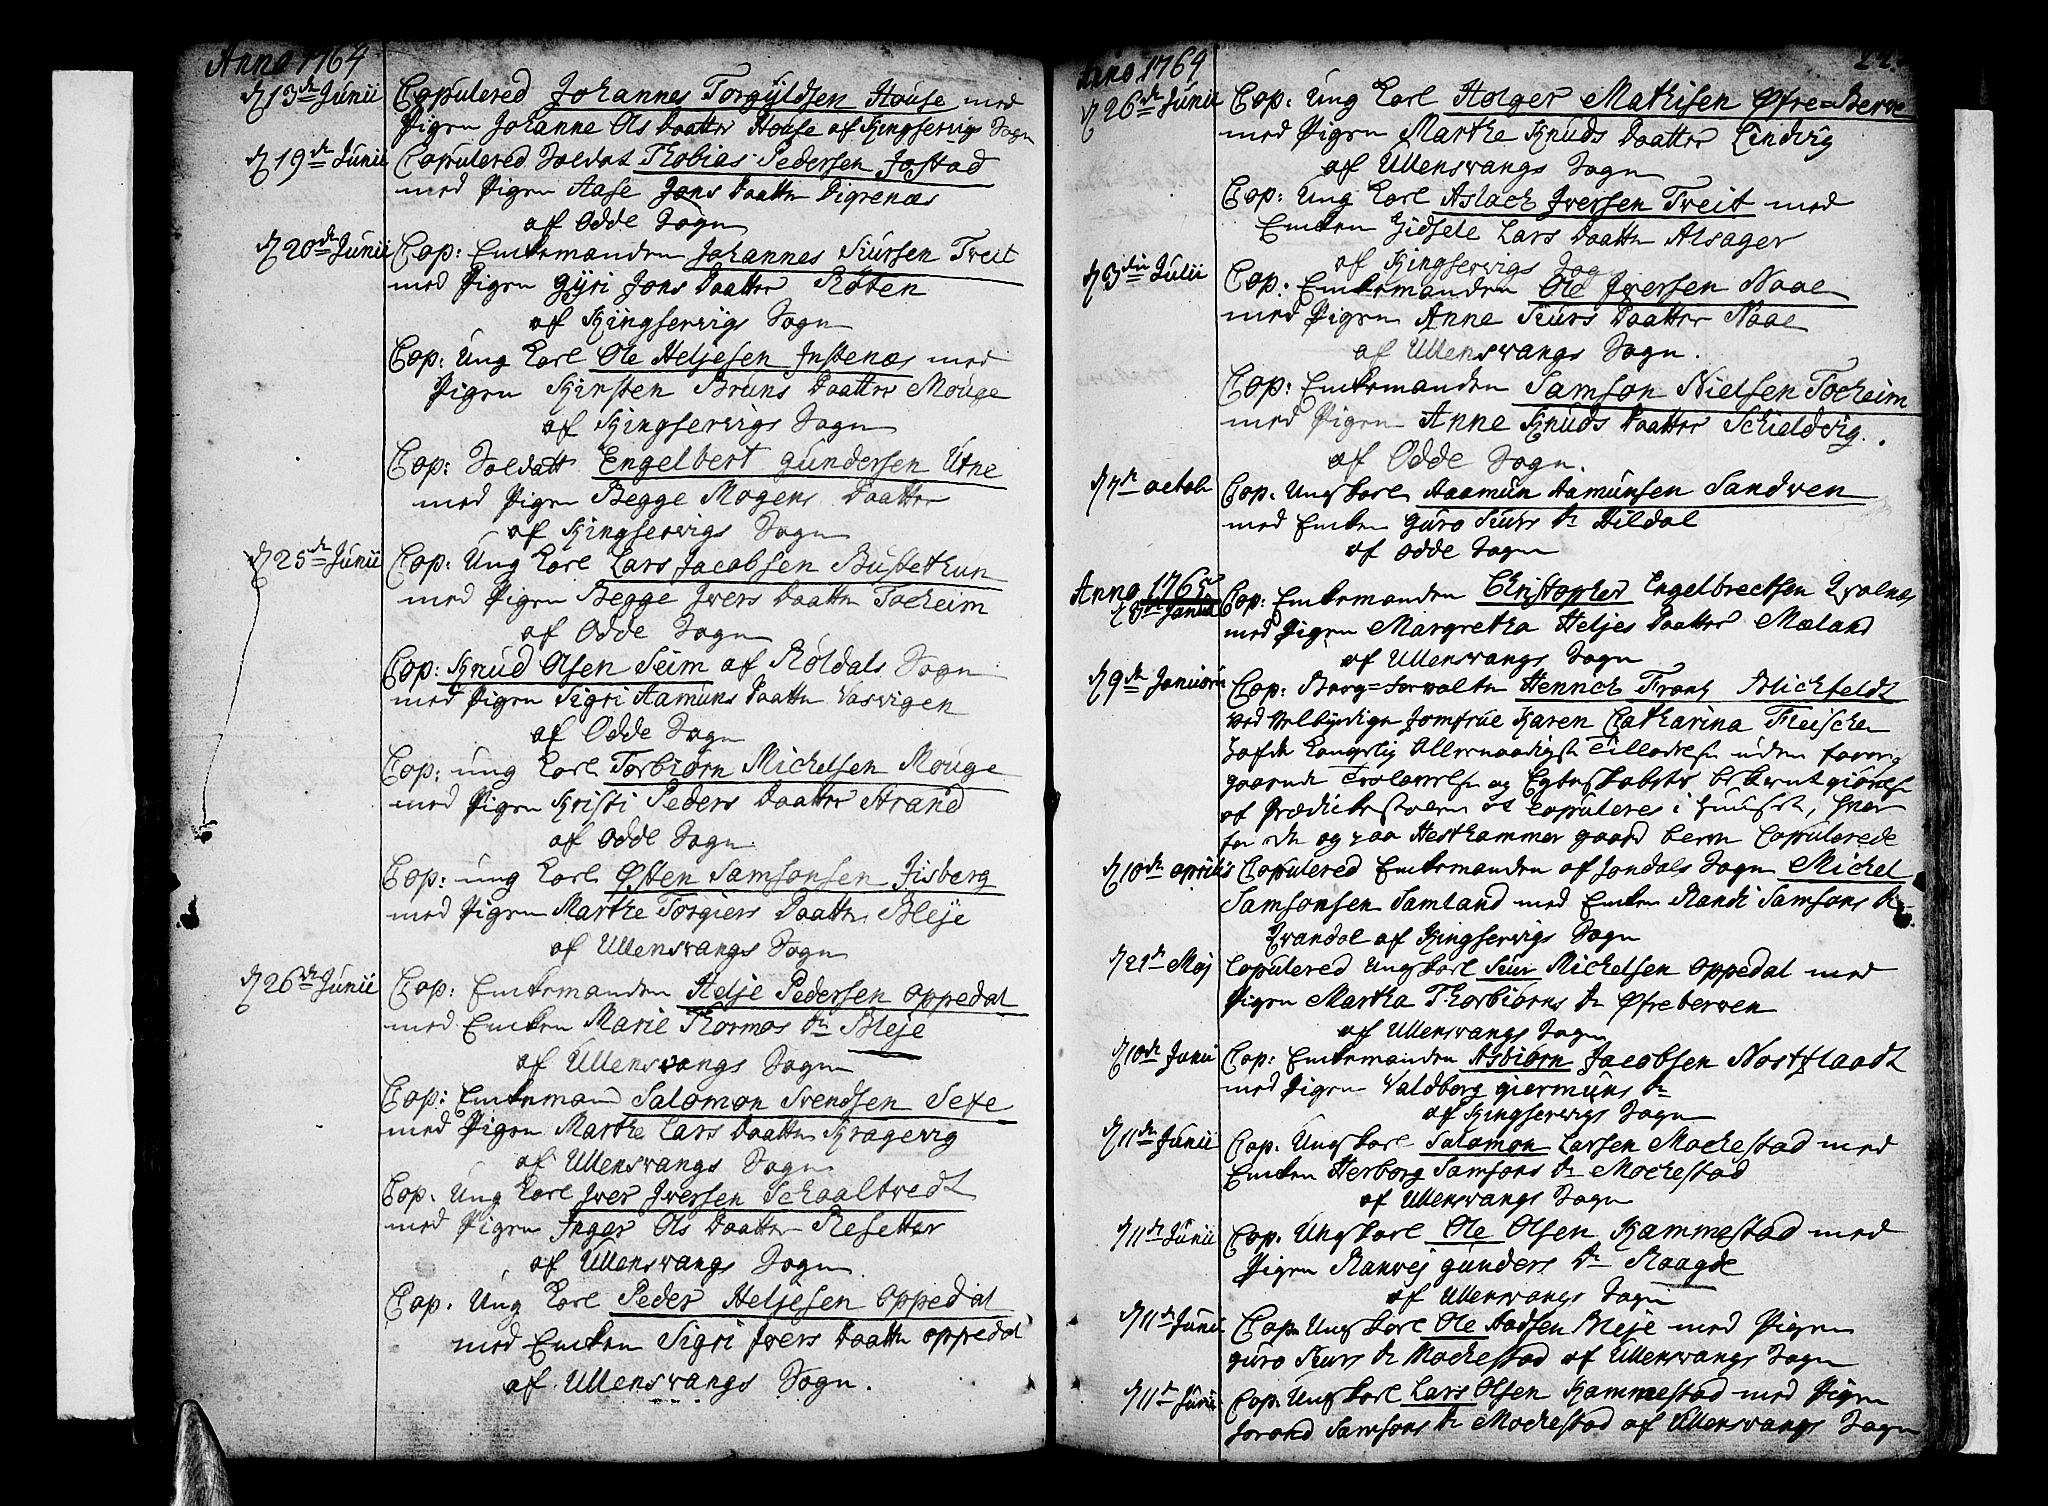 Anno 1764
d 13de Junii Copulered Johannes Torgyldsen House med
Pigen Johanne Ols Daatter House af Kingservigs Sogn
d 19de Junii Copulered Soldat Thobias Pedersen Jostad
med Pigen Aase Jons Daatter Digrenæs
af Odde Sogn
d 20de Junii Cop: Enkemanden Johannes Siursen Treit
med Pigen Gyri Jons Daatter Røten
af Kingservigs Sogn
Cop: Ung Karl Ole Heljesen Instenæs med
Pigen Kirsten Bruns Daatter Mouge
af Kingservigs Sogn
Cop: Soldatt Engelbert Gundersen Utne
med Pigen Begge Mogens Daatter
af Kingservigs Sogn
d 25de Junii Cop: Ung Karl Lars Jacobsen Bustethun
med Pigen Begge Ivers Daatter Tocheim
af Odde Sogn
Cop: Knud Olsen Seim af Røldals Sogn
med Pigen Sigri Aamuns Daatter Vasvigen
af Odde Sogn
Cop: ung Karl Torbiørn Michelsen Mouge
med Pigen Kristi Peders Daatter Strand
af Odde Sogn
Cop: ung Karl Østen Samsonsen Jisberg
med Pigen Marthe Torgiers Daatter Bleje
af Ullensvangs Sogn
d 26de Junii Cop: Enkemanden Helje Pedersen Oppedal
med Enken Marie Thormos Dr Bleje
af Ullensvangs Sogn
Cop: Enkemand Salomon Svendsen Sexe
med Pigen Marthe Lars Daatter Kragevig
af Ullensvangs Sogn
Cop. Ung Karl Iver Iversen Schaaltvedt
med Pigen Inger Ols Daatter Resetter
af Ullensvangs Sogn
Cop. Ung Karl Peder Heljesen Oppedal
med Enken Sigri Ivers Daatter Oppedal
af Ullensvangs Sogn.
Anno 1764
d 26de Junii Cop: Ung Karl Holger Mathisen Øfre=Berve
med Pigen Marthe Knuds Daatter Lindvig
af Ullensvangs Sogn
Cop: Ung Karl Aslach Iversen Treit med
Enken Zidsele Lars Daatter Alsager
af Kingservigs Sogn
d 3die Julii Cop: Enkemanden Ole Iversen Naae
med Pigen Anne Siurs Daatter Naae
af Ullensvangs Sogn.
Cop: Enkemanden Samson Nielsen Tocheim
med Pigen Anne Knuds Daatter Schieldvig.
af Odde Sogn.
d 7de octob Cop. Ungkarl Aaamun Aamunsen Sandven
med Enken Guro Siurs Dr Hildal
af Odde Sogn
Anno 1765
Cop: Enkemanden Christopher Engelbrectsen Qvalnæs
med Pigen Margretha Heljes Daatter Mæland
af Ullensvangs Sogn
d 9de Januarii Cop: Berg=Forvalter Henrich Frantz Blichfeldt
Ved Velbyrdige Jomfrue Karen Catharina Fleischer
hafde Kongelig Allernaadigst Tilladelse uden foregaaende
Trolovelse og Egteskabets bekientgiørelse
af Prædikestolen at Copuleres i Huuset, hvor
for de og paa Hesthammer gaard bleve Copulerede
d 10de aprilis Copulered Enkemanden af Jondals Sogn Michel
Samsonsen Samland med Enken Randi Samsons Dr
Qvandal af Kingservigs Sogn
d 21de Maj Copulered Ungkarl Siur Michelsen Oppedal med
Pigen Martha Thorbiørns Dr Øfreberven
af Ullensvangs Sogn
d 10de Junii Cop: Enkemanden Asbiørn Jacobsen Nostflaadt
med Pigen Valdborg Giermuns Dr
af Kingservigs Sogn
d 11de Junii Cop. Ungkarl Salomon Larsen Mochestad med
Enken Herborg Samsons Dr Mochestad
af Ullensvangs Sogn
d 11de Junii Cop. Ungkarl Ole Olsen Hammestad med
Pigen Ranvej Gunders Dr Raagde
af Ullensvangs Sogn
d 11de Junii Cop. Ungkarl Ole Aadsen Bleje med Pigen
Guro Siurs Dr Mochestad af Ullensvangs Sogn
d 11de Junii Cop. Ungkarl Lars Olsen Hammestad med Pigen
Jorand Samsons Dr Mochestad af Ullensvangs Sogn